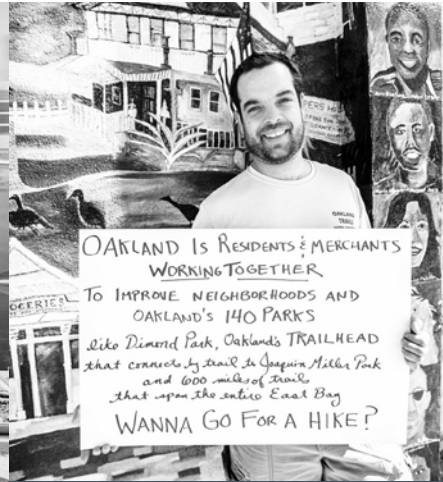 OAKLAND IS RESIDENTS & MERCHANTS
WORKING TOGETHER
TO IMPROVE NEIGHBORHOODS AND
OAKLAND'S 140 PARKS
like Dimond Park, Oakland's TRAILHEAD
that connects by trail to Joaquin Miller Park
and 600 miles of trails
that span the entire East Bay
WANNA GO FOR A HIKE?
OAKLAND
TRAILS